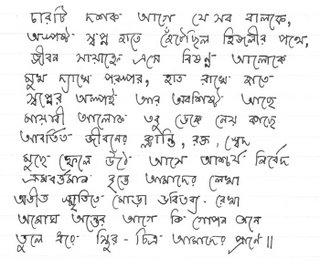 চারটি দশক আগে যে সব বালকে,
অস্পষ্ট স্বপ্ন হাতে হেঁটেছিল হিজলীর পথে,
জীবন সায়াহ্নে এসে বিষণ্ণ আলোকে
মুখ দ্যাখে পরস্পর, হাত রাখে হাতে
স্বপ্নের অল্পই আর অবশিষ্ট আছে
মায়াবী আলোক তবু ডেকে নেয় কাছে
আবর্তিত জীবনের ক্লান্তি, রক্ত, স্বেদ
মুছে ফেলে উঠে আসে আশ্চর্য নির্বেদ
ক্রমবর্তমান বৃত্তে আমাদের লেখা
অতীত স্মৃতিতে মোড়া ভবিতব্য রেখা
অমোঘ অন্তের আগে কি গোপন টানে
তুলে ধরে স্থির-চিত্র আমাদের প্রাণে॥